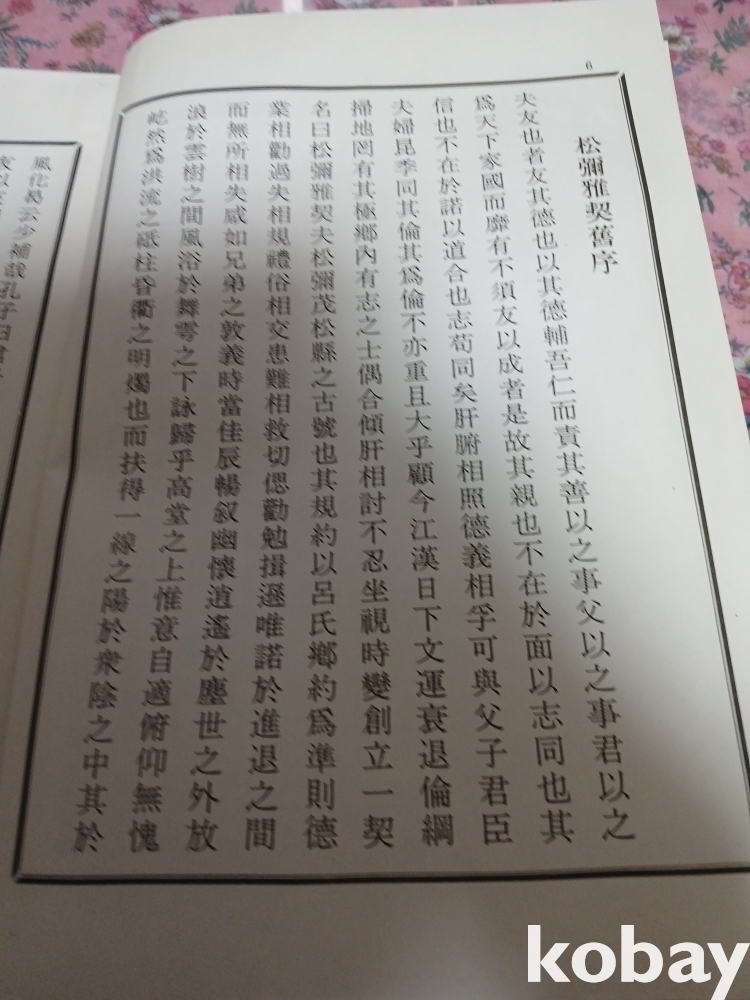 6
松彌雅契舊序
夫友也者友其德也以其德輔吾仁而責其善以之事父以之事君以之
爲天下家國而靡有不須友以成者是故其親也不在於面以志同也其
信也不在於諾以道合也志苟同矣肝腑相照德義相孚可與父子君臣
夫婦昆季同其倫其爲倫不亦重且大乎顧今江漢日下文運衰退倫綱
掃地罔有其極鄕內有志之士偶合傾肝相討不忍坐視時變創立一契
名曰松彌雅契夫松彌茂松縣之古號也其規約以呂氏鄕約爲準則德
業相勸過失相規禮俗相交患難相救切偲勸勉揖遜唯諾於進退之間
而無所相失咸如兄弟之敦義時當佳辰暢叙幽懷逍遙於塵世之外放
浪於雲樹之間風俗於舞雩之下詠歸乎高堂之上惟意自適俯仰無愧
屹然爲洪流之砥柱昏衢之明燭也而扶得一線之陽於衆陰之中其於
風化曷云少補哉孔子曰君
友以
kobay